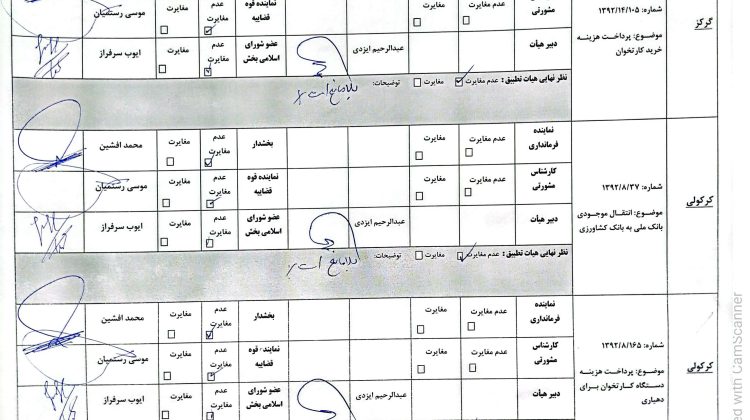 گرگز
شماره: ۱۳۹۲/۱۴/۱۰۵
موضوع: پرداخت هزینه
خرید کارتخوان
مشورتی
عدم مغایرت
مغایرت
نماینده قوه
قضاییه
عدم
مغایرت
مغایرت
موسی رستمیان
دبیر هیأت
عبدالرحیم ایزدی
عضو شورای
اسلامی بخش
عدم
مغایرت
مغایرت
ایوب سرفراز
نظر نهایی هیات تطبیق : عدم مغایرت مغایرت توضیحات: بلامانع است
کرکولی
شماره: ۱۳۹۲/۸/۳۷
موضوع: انتقال موجودی
بانک ملی به بانک کشاورزی
نماینده
فرمانداری
عدم مغایرت
مغایرت
بخشدار
عدم
مغایرت
مغایرت
محمد افشین
کارشناس
مشورتی
عدم مغایرت
مغایرت
نماینده قوه
قضاییه
عدم
مغایرت
مغایرت
موسی رستمیان
دبیر هیأت
عبدالرحیم ایزدی
عضو شورای
اسلامی بخش
عدم
مغایرت
مغایرت
ایوب سرفراز
نظر نهایی هیات تطبیق : عدم مغایرت مغایرت توضیحات: بلامانع است
کرکولی
شماره: ۱۳۹۲/۸/۱۶۵
موضوع: پرداخت هزینه
دستگاه کارتخوان برای
دهیاری
نماینده
فرمانداری
عدم مغایرت
مغایرت
بخشدار
عدم
مغایرت
مغایرت
محمد افشین
کارشناس
مشورتی
عدم مغایرت
مغایرت
نماینده قوه
قضاییه
عدم
مغایرت
مغایرت
موسی رستمیان
دبیر هیأت
عبدالرحیم ایزدی
عضو شورای
اسلامی بخش
عدم
مغایرت
مغایرت
ایوب سرفراز
with CamScanner